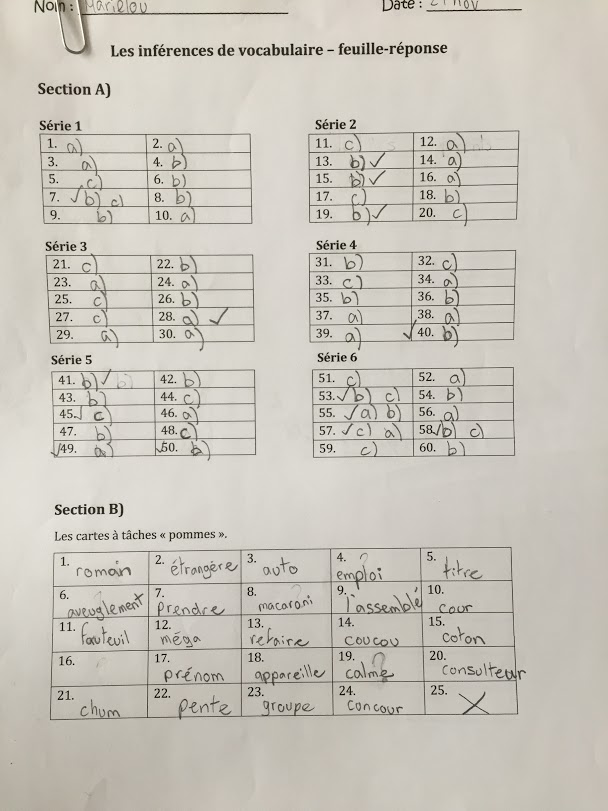 Nom : Marielou Date : 21 nov
Les inférences de vocabulaire – feuille-réponse
Section A)
Série 1
1. a) 2. a)
3. a) 4. b)
5. c) 6. b)
7. ✓b) c) 8. b)
9. b) 10. a)
Série 2
11. c) 12. a)
13. b) ✓ 14. a)
15. b) ✓ 16. a)
17. c) 18. b)
19. b) ✓ 20. c)
Série 3
21. c) 22. b)
23. a) 24. a)
25. c) 26. b)
27. c) 28. a) ✓
29. a) 30. a)
Série 4
31. b) 32. c)
33. c) 34. a)
35. b) 36. b)
37. a) 38. a)
39. a) ✓40. b)
Série 5
41. b) ✓ b) 42. b)
43. b) 44. c)
45. ✓ c) 46. a)
47. b) 48. c)
✓49. a) ✓50. b)
Série 6
51. c) 52. a)
53. ✓b) c) 54. b)
55. ✓a) b) 56. a)
57. ✓c) a) 58. ✓b) c)
59. c) 60. b)
Section B)
Les cartes à tâches « pommes ».
1. romain 2. étrangère 3. auto 4. ? emploi 5. titre
6. aveuglement 7. Prendre 8. macaroni 9. l'assemblé 10. cour
11. fauteuil 12. méga 13. refaire 14. coucou 15. coton
16. 17. prénom 18. appareille 19. ? calme 20. consulteur
21. chum 22. pente 23. groupe 24. concour 25. X